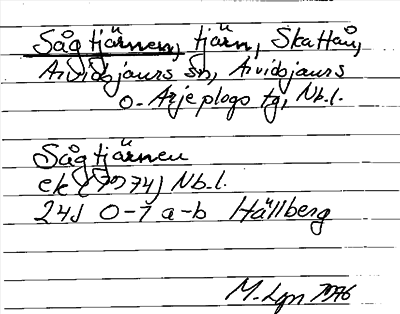 Sågtjärnen, tjärn, Skattån,
Arvidsjaurs sn, Arvidsjaurs
o. Arjeplogs tg, Nb.l.
Sågtjärnen
ek (1974) Nb.l.
24J 0-1 a-b Hällberg
M. Lgn 1976